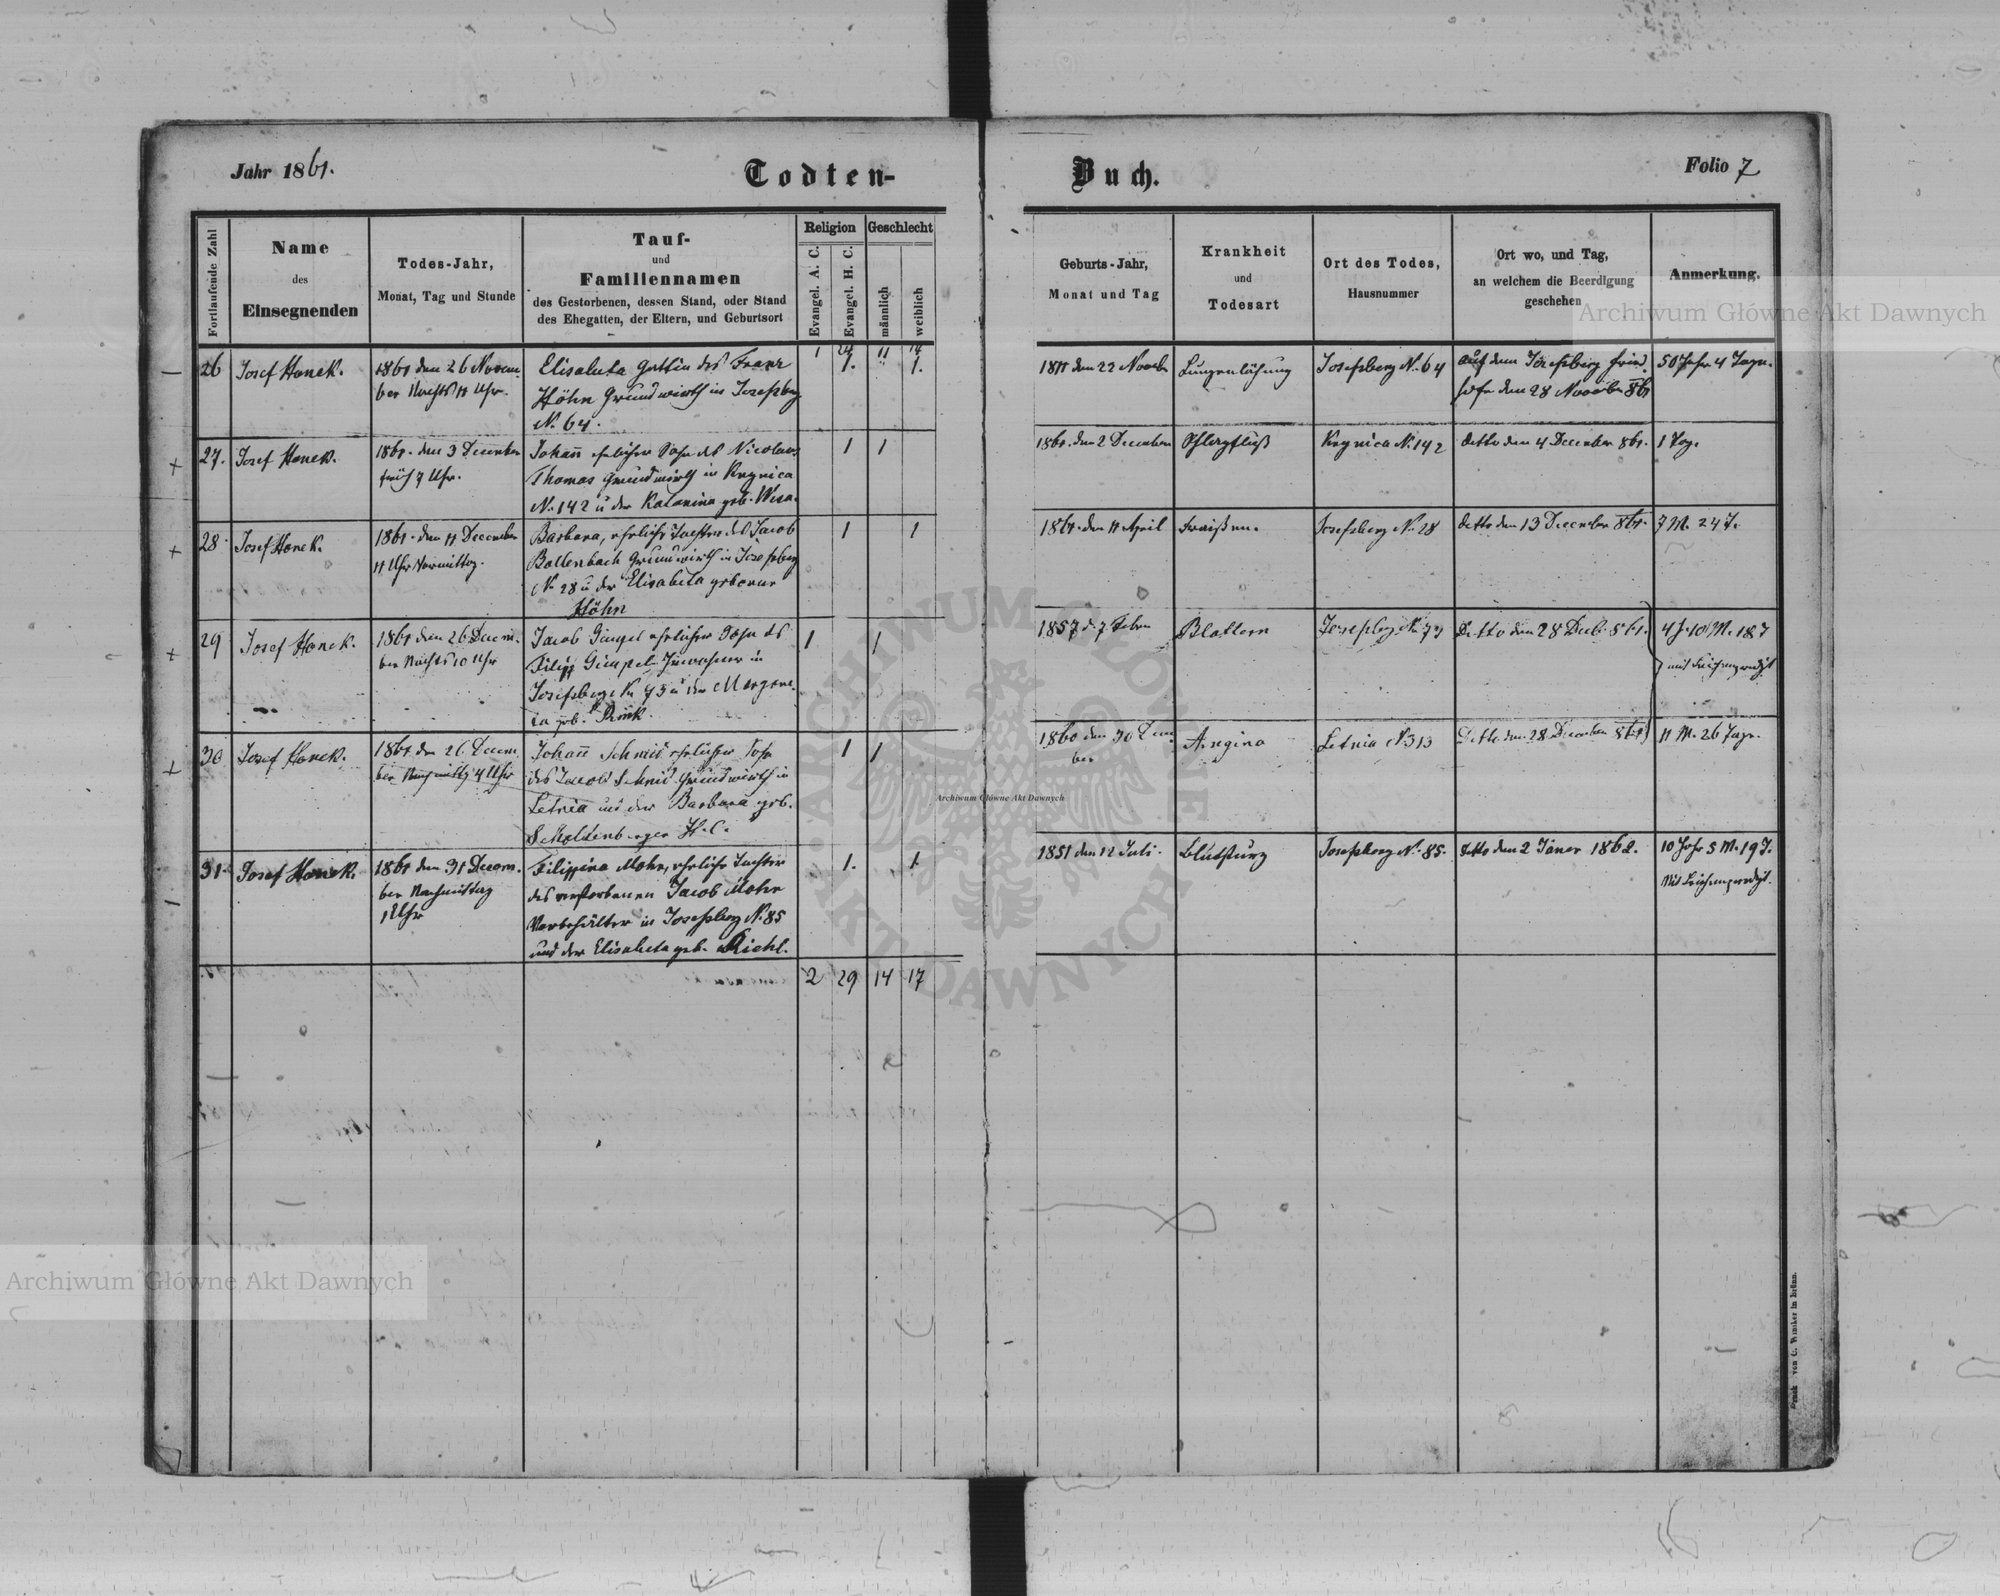 Jahr 1861.
Todten-
Buch.
Folio 7
Fortlaufende Zahl
Name
des
Einsegnenden
Todes-Jahr,
Monat, Tag und Stunde
Tauf-
und
Familiennamen
des Gestorbenen, dessen Stand, oder Stand
des Ehegatten, der Eltern, und Geburtsort
Religion
Evangel. A. C.
Evangel. H. C.
Geschlecht
männlich
weiblich
Geburts-Jahr,
Monat und Tag
Krankheit
und
Todesart
Ort des Todes,
Hausnummer
Ort wo, und Tag,
an welchem die Beerdigung
geschehen
Anmerkung.
1 24 11 14
26 Josef Honek.
1861 den 26 Novem-
ber Nachts 11 Uhr.
Elisabeta Gattin des Franz
Höhn Grundwirth in Josefsberg
N. 64.
1. 1.
1811 den 22 Novebr
Josefsberg N. 64
auf dem Josefsberg fried
hofe den 28 November 861
50 Jahr 4 Tage.
27. Josef Honek.
1861. den 3 December
früh 4 Uhr.
Johann ehelicher Sohn des Nicolaus
Thomas Grundwirth in Krynica
N. 142 u der Katarina geb. Wira.
1 1
1861. den 2 December
Krynica N. 142
detto den 4 December 861.
1 Tag.
28. Josef Honek.
1861. den 11 December
11 Uhr Vormittag.
Barbara, eheliche Tochter des Jacob
Bollenbach Grundwirth in Josefsberg
N. 28 u der Elisabeta geborne
Höhn
1 1
1861. den 11 April
Fraißen.
Josefsberg N. 28
detto den 13 December 861.
7 M. 24 T.
29 Josef Honek.
1861 den 26 Decem-
ber Nachts 10 Uhr
Jacob Gimpel ehelicher Sohn des
Filipp Gimpel Inwohner in
Josefsberg N. 75 u der Margare-
ta geb. Rink.
1 1
1857 d. 7 Febr
Blattern
Detto den 28 Decb. 861.
4 J. 10 M. 18 T
mit Leichenpredigt
30 Josef Honek.
1861 den 26 Decem
ber Nachmittg 4 Uhr
Johann Schmid ehelicher Sohn
des Jacob Schmid Grundwirth in
Letnia und der Barbara geb.
H. C.
1 1
1860 den 30
ber
Angina
Letnia N 313
Detto den 28 December 861
11 M. 26 Tage.
31. Josef Honek.
1861 den 31 Decem.
ber Nachmittag
1 Uhr
Filippina Mohr, eheliche Tochter
des verstorbenen Jacob Mohr
in Josefsberg N. 85
und der Elisabeta geb. Riehl.
1. 1.
1851 den 12 Juli.
Blutsturz
Josefsberg N. 85.
detto den 2 Jäner 1862.
10 Jahr 5 M. 19 T.
Mit Leichenpredigt.
2 29 14 17
Archiwum Główne Akt Dawnych
Archiwum Główne Akt Dawnych
Archiwum Główne Akt Dawnych
ARCHIWUM GŁÓWNE
AKT DAWNYCH
Druck von C. Winiker in Brünn.